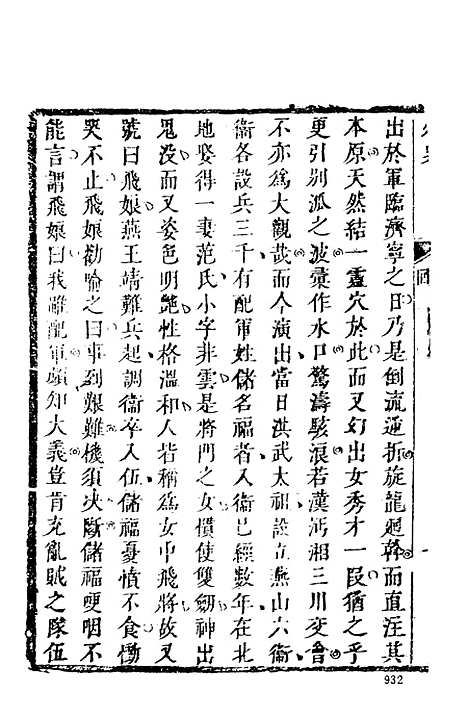 出於軍臨濟寧之日乃是倒流逆折旋龍廻幹而直注其
本原天然結一靈穴於此而又幻出女秀才一段猶之乎
更引別派之波彙作水口驚濤駭浪若漢沔湘三川交會
不亦爲大觀哉而今演出當日洪武太祖設立燕山六衞
衞各設兵三千有配軍姓儲名福者入衞已經數年在北
地娶得一妻范氏小字非雲是將門之女慣使雙劒神出
鬼没而又姿色明艷性格溫和人若稱爲女中飛將故又
號曰飛娘燕王靖難兵起調衞卒入伍儲福憂憤不食慟
哭不止飛娘勸喻之曰事到艱難機須决斷儲福哽咽不
能言謂飛娘曰我雖配軍頗知大義豈肯充亂賊之隊伍
932